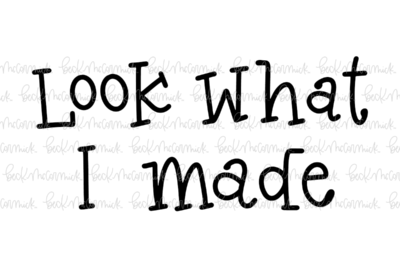 Look what
I made